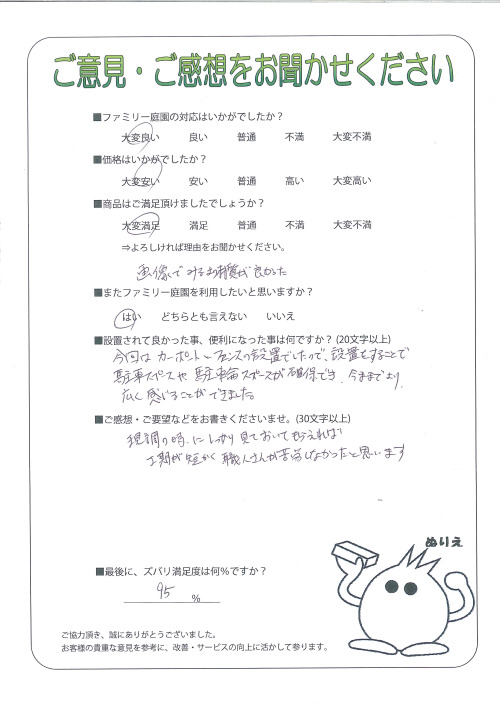 ご意見・ご感想をお聞かせください
■ファミリー庭園の対応はいかがでしたか？
大変良い 良い 普通 不満 大変不満
■価格はいかがでしたか？
大変安い 安い 普通 高い 大変高い
■商品はご満足頂けましたでしょうか？
大変満足 満足 普通 不満 大変不満
⇒よろしければ理由をお聞かせください。
画像でみるより質が良かった
■またファミリー庭園を利用したいと思いますか？
はい どちらとも言えない いいえ
■設置されて良かった事、便利になった事は何ですか？(20文字以上)
今回は カーポートとフェンスの設置でしたので、設置をすることで
駐車スペースや 駐車輪スペースが確保でき、今までより
広く感じることができました。
■ご感想・ご要望などをお書きくださいませ。(30文字以上)
現調の時にしっかり見ておいてもらえれば
工期が短かく職人さんが苦労しなかったと思います
ぬりえ
■最後に、ズバリ満足度は何％ですか？
95 %
ご協力頂き、誠にありがとうございました。
お客様の貴重な意見を参考に、改善・サービスの向上に活かして参ります。